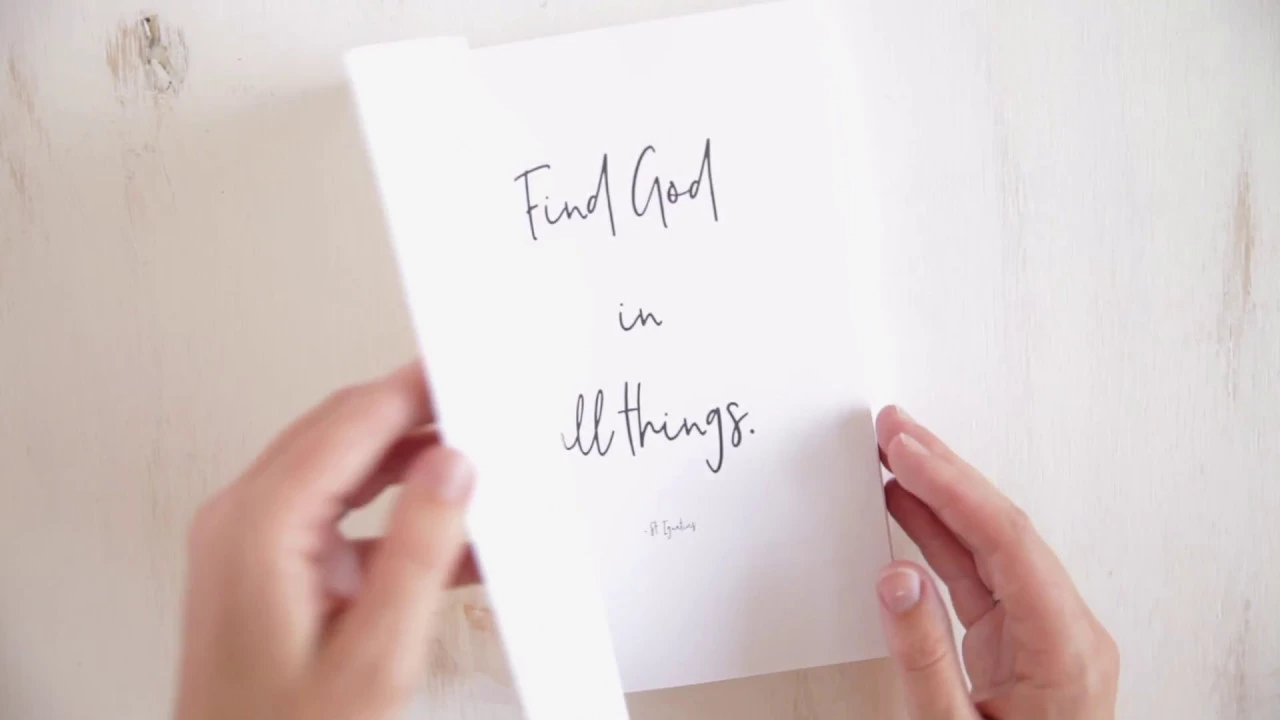 Find God
in
ll things.
- St Ignatius